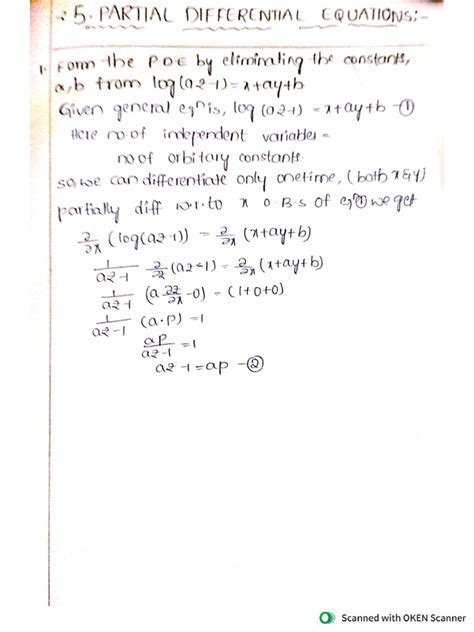 :5. PARTIAL DIFFERENTIAL EQUATIONS:-
1. Form the PDE by eliminating the constants,
a,b from log(az-1)=x+ay+b
Given general eqⁿ is, log(az-1)=x+ay+b -①
Here no.of independent variables =
no of orbitary constants
so, we can differentiate only onetime, (both x&y)
partially diff w.r.to x O.B.S of eq① we get
∂/∂x (log(az-1)) = ∂/∂x (x+ay+b)
1/(az-1) ∂/∂x (az-1) = ∂/∂x (x+ay+b)
1/(az-1) (a ∂z/∂x -0) = (1+0+0)
1/(az-1) (a.p) = 1
ap/(az-1) = 1
az-1=ap -②
Scanned with OKEN Scanner